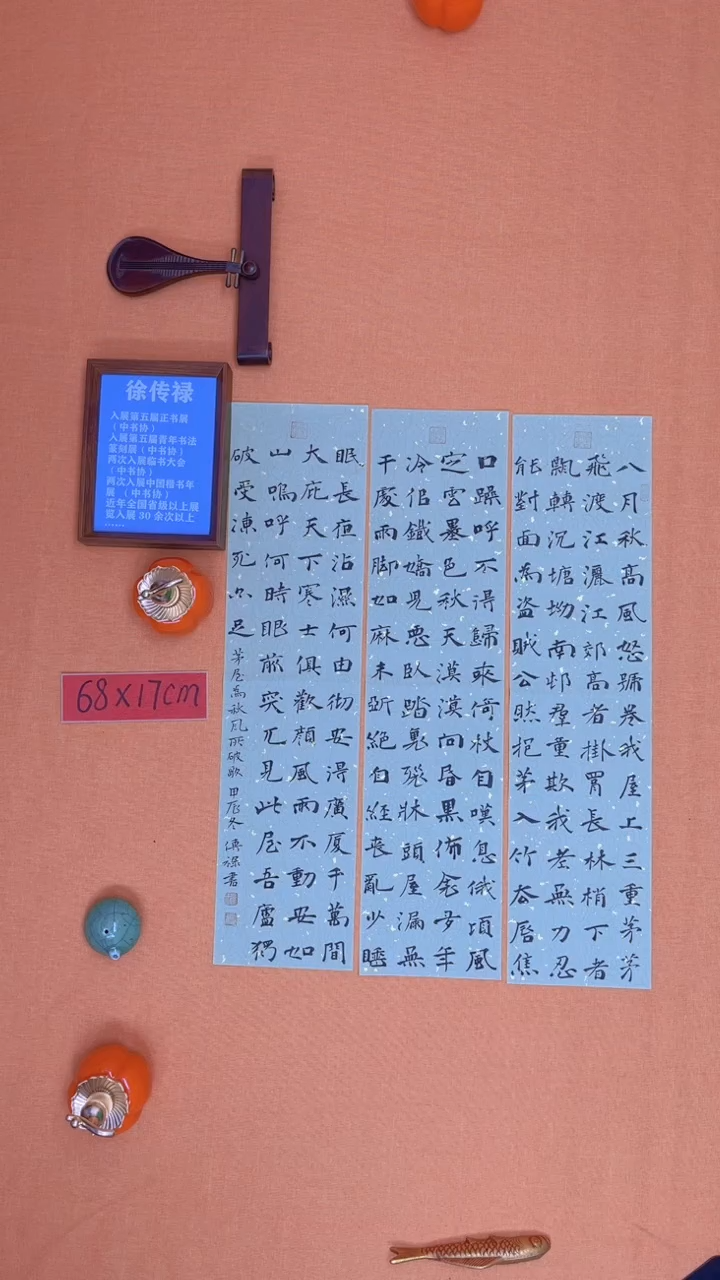 徐传禄
入展第五届正书展
（中书协）
入展第五届青年书法
篆刻展（中书协）
两次入展临书大会
（中书协）
两次入展中国楷书年
展 （中书协）
近年全国省级以上展
览入展 30 余次以上
......
八月秋高風怒號卷我屋上三重茅茅
飛渡江灑江郊高者掛罥長林梢下者
飄轉沉塘坳南邨羣重欺我老無力忍
能對面為盜賊公然抱茅入竹去唇焦
口躁呼不得歸來倚杖自嘆息俄頃風
定雲墨色秋天漠漠向昏黑佈衾多年
冷佀鐵嬌兒惡臥踏裏裂牀頭屋漏無
干處雨脚如麻未斷絕自經喪亂少睡
眠長夜沾濕何由彻安得廣厦千萬間
大庇天下寒士俱歡顏風雨不動安如
山嗚呼何時眼前突兀見此屋吾廬獨
破受凍死亦足
茅屋為秋風所破歌 甲辰冬 傳祿書
68×17cm